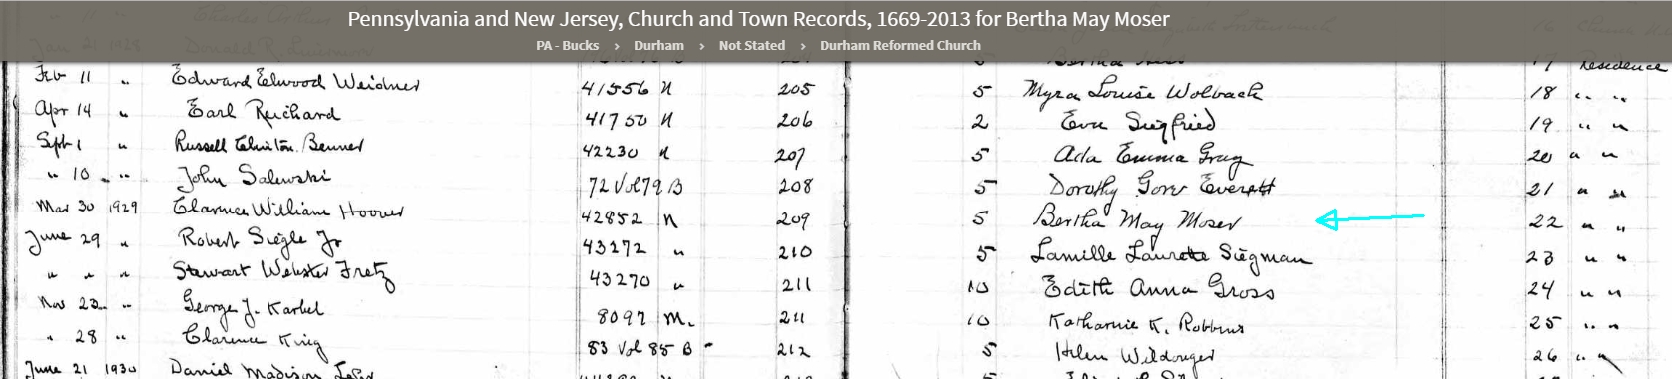 Pennsylvania and New Jersey, Church and Town Records, 1669-2013 for Bertha May Moser
PA - Bucks › Durham › Not Stated › Durham Reformed Church
17 Residence
Feb 11 " Edward Elwood Weidner 41556 N 205 5 Myra Louise Wolbach 18 " "
Apr 14 " Earl Reichard 41750 N 206 2 Eva Siegfried 19 " "
Sept 1 " Russell Benner 42230 N 207 5 Ada Emma Gray 20 " "
" 10 " " John Salewski 72 Vol 79 B 208 5 Dorothy Everett 21 " "
Mar 30 1929 Clarence William Hoover 42852 N 209 5 Bertha May Moser 22 " "
June 29 " Robert Siegle Jr 43272 " 210 5 Siegman 23 " "
" " " Stewart Webster Fretz 43270 " 211 10 Edith Anna Gross 24 " "
Nov 23 " George J. 8097 M. 211 10 Katharine K. Robbins 25 " "
" 28 " Clarence King 83 Vol 85 B - 212 5 Helen Wildonger 26 " "
June 21 1930 Daniel Madison